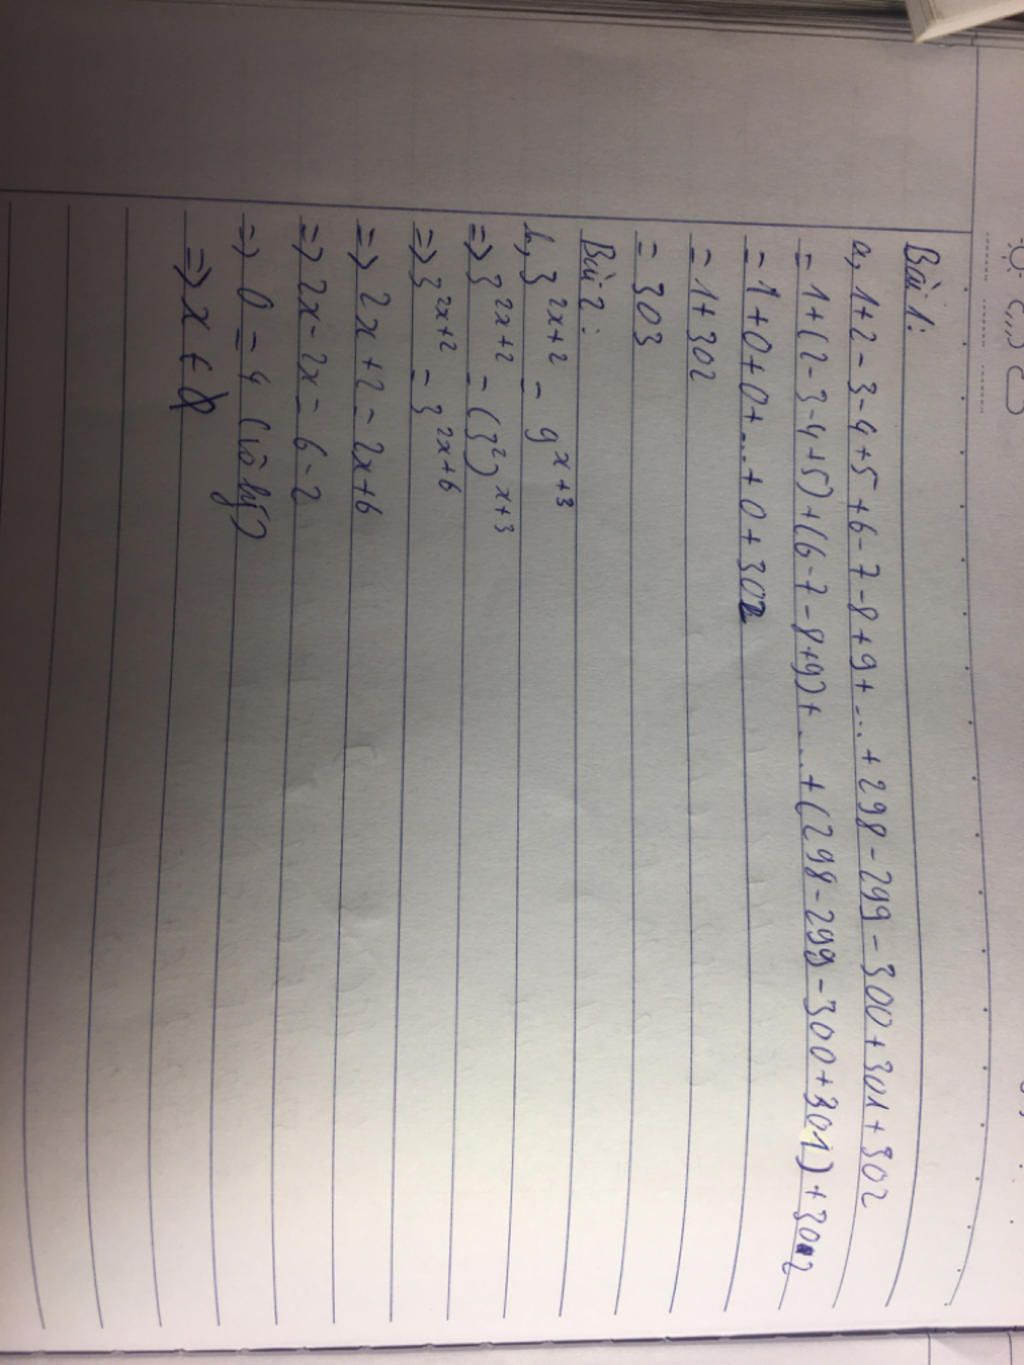 Bài 1:
a, 1+2-3-4+5+6-7-8+9+...+298-299-300+301+302
= 1+(2-3-4+5)+(6-7-8+9)+....+(298-299-300+301)+302
= 1+0+0+...+0+302
= 1+302
= 303
Bài 2:
b, 3^{2x+2} = 9^{x+3}
=> 3^{2x+2} = (3^2)^{x+3}
=> 3^{2x+2} = 3^{2x+6}
=> 2x+2 = 2x+6
=> 2x-2x = 6-2
=> 0 = 4 (vô lý)
=> x ∈ ∅